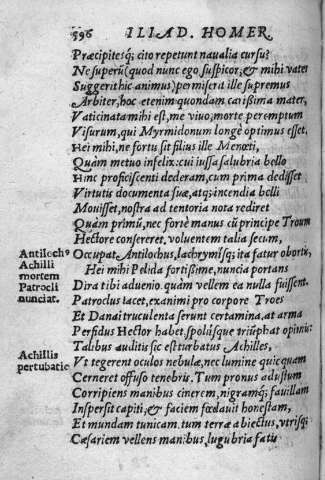 596 ILIAD. HOMER.
Præcipitesq́; cito repetunt naualia cursu?
Ne superũ (quod nunc ego suspicor, & mihi vates
Suggerit hic animus) permisera ille supremus
Arbiter, hoc etenim quondam carißima mater,
Vaticinata mihi est, me viuo, morte peremptum
Visurum, qui Myrmidonum longè optimus esset.
Hei mihi, ne fortis sit filius ille Menœti,
Quàm metuo infelix: cui iussa salubria bello
Hinc proficiscenti dederam, cum prima dedisset
Virtutis documenta suæ, atq; incendia belli
Mouisset, nostra ad tentoria nota rediret
Quàm primũ, nec fortè manus cũ principe Troum
Hectore consereret. voluentem talia secum,
Antiloch⁹ Occupat Antilochus, lachrymisq́; ita fatur obortis,
Achilli Hei mihi Pelida fortißime, nuncia portans
mortem Dira tibi aduenio. quàm vellem ea nulla fuissent.
Patrocli Patroclus iacet, exanimi pro corpore Troes
nunciat. Et Danai truculenta serunt certamina, at arma
Perfidus Hector habet, spolijsque triũphat opimis.
Talibus auditis sic est turbatus Achilles,
Achillis Vt tegerent oculos nebulæ, nec lumine quicquam
pertubatio Cerneret offuso tenebris. Tum pronus adustum
Corripiens manibus cinerem, nigramq́; fauillam
Inspersit capiti, & faciem fœdauit honestam,
Et mundam tunicam. tum terra abiectus, vtrisq́;
Cæsariem vellens manibus, lugubria fatis